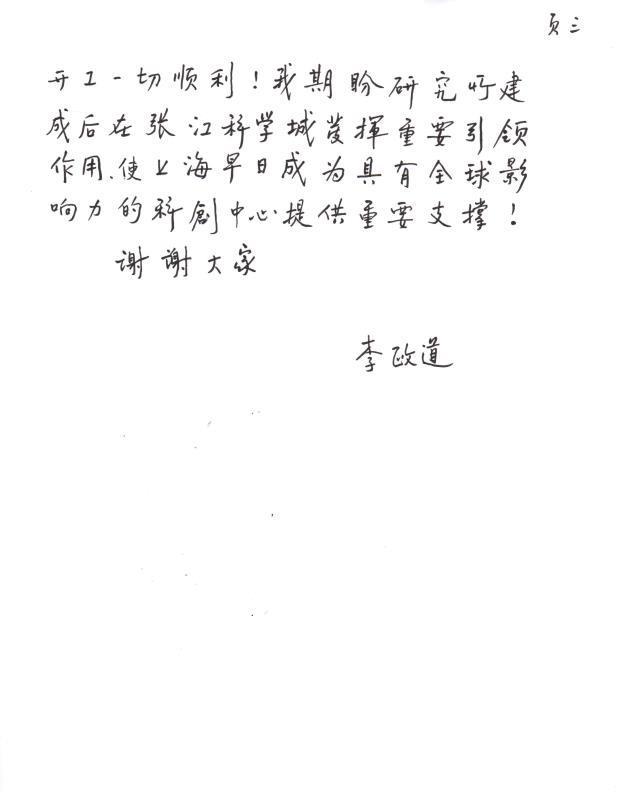 页三
开工一切顺利！我期盼研究所建
成后在张江科学城发揮重要引领
作用、使上海早日成为具有全球影
响力的科創中心提供重要支撑！
谢谢大家
李政道